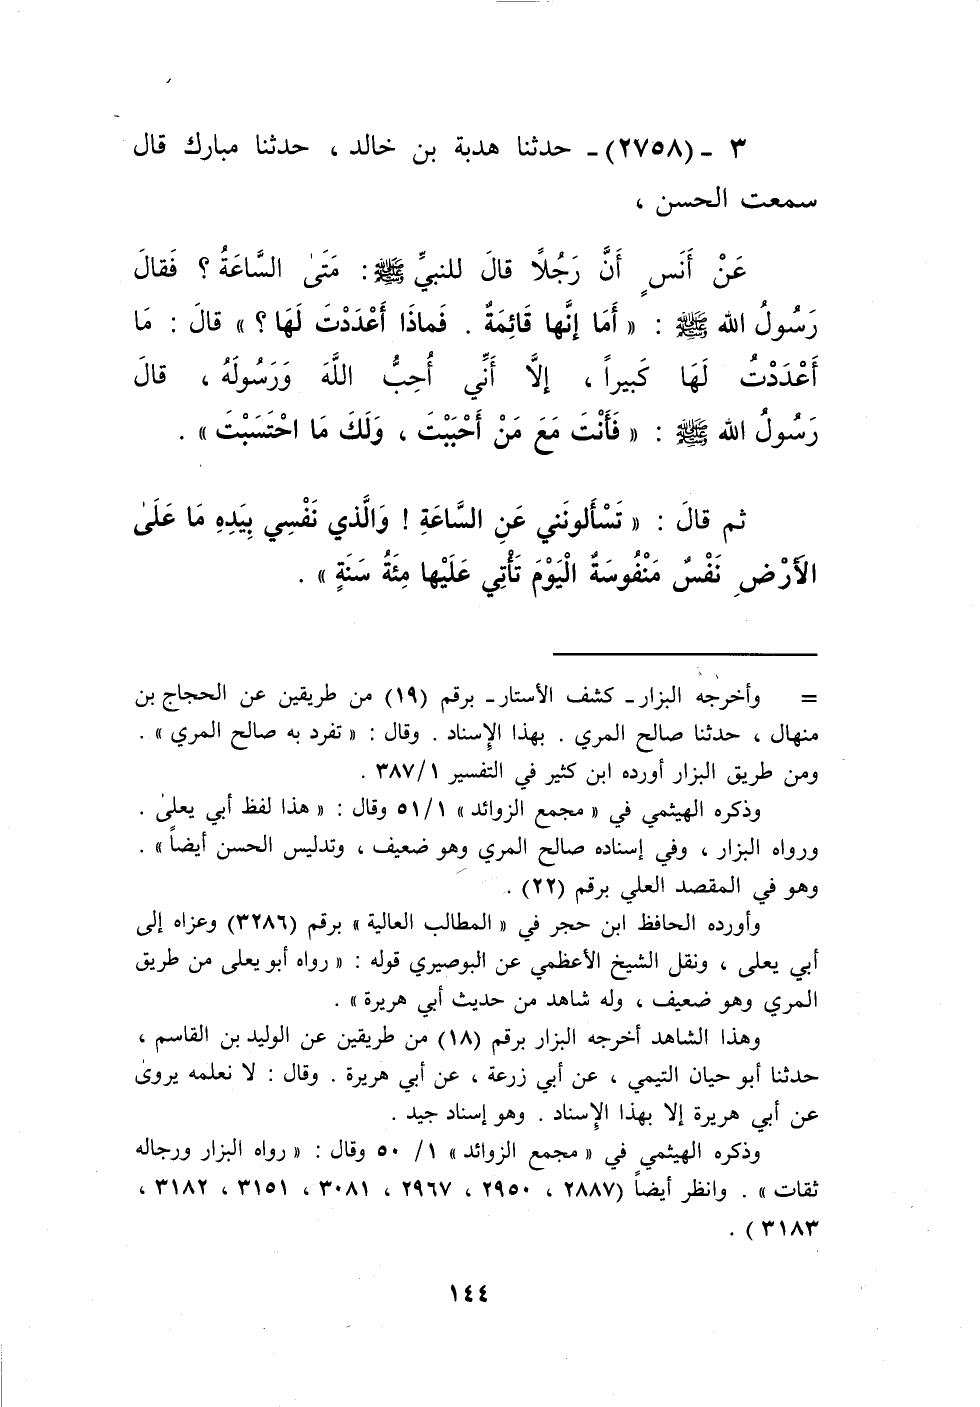 ٣ ـ (٢٧٥٨) ـ حدثنا هدبة بن خالد ، حدثنا مبارك قال
سمعت الحسن ،
عَنْ أَنَسٍ أَنَّ رَجُلًا قالَ للنبيِّ ﷺ : مَتَىٰ السَّاعَةُ ؟ فَقالَ
رَسُولُ الله ﷺ : « أَمَا إِنَّها قَائِمَةٌ . فَماذَا أَعْدَدْتَ لَهَا ؟ » قالَ : مَا
أَعْدَدْتُ لَهَا كَبيراً ، إلَّا أَنِّي أُحِبُّ اللَّهَ وَرَسُولَهُ ، قالَ
رَسُولُ الله ﷺ : « فَأَنْتَ مَعَ مَنْ أَحْبَبْتَ ، وَلَكَ مَا احْتَسَبْتَ » .
ثم قالَ : « تَسْأَلونَني عَنِ السَّاعَةِ ! وَالَّذي نَفْسِي بِيَدِهِ مَا عَلَىٰ
الأَرْضِ نَفْسٌ مَنْفُوسَةٌ الْيَوْمَ تَأْتِي عَلَيْها مِئَةُ سَنَةٍ » .
= وأخرجه البزار ـ كشف الأستار ـ برقم (١٩) من طريقين عن الحجاج بن
منهال ، حدثنا صالح المري . بهذا الإسناد . وقال : « تفرد به صالح المري » .
ومن طريق البزار أورده ابن كثير في التفسير ٣٨٧/١ .
وذكره الهيثمي في « مجمع الزوائد » ٥١/١ وقال : « هذا لفظ أبي يعلىٰ .
ورواه البزار ، وفي إسناده صالح المري وهو ضعيف ، وتدليس الحسن أيضاً » .
وهو في المقصد العلي برقم (٢٢) .
وأورده الحافظ ابن حجر في « المطالب العالية » برقم (٣٢٨٦) وعزاه إلى
أبي يعلى ، ونقل الشيخ الأعظمي عن البوصيري قوله : « رواه أبو يعلى من طريق
المري وهو ضعيف ، وله شاهد من حديث أبي هريرة » .
وهذا الشاهد أخرجه البزار برقم (١٨) من طريقين عن الوليد بن القاسم ،
حدثنا أبو حيان التيمي ، عن أبي زرعة ، عن أبي هريرة . وقال : لا نعلمه يروىٰ
عن أبي هريرة إلا بهذا الإِسناد . وهو إسناد جيد .
وذكره الهيثمي في « مجمع الزوائد » ١/ ٥٠ وقال : « رواه البزار ورجاله
ثقات » . وانظر أيضاً (٢٨٨٧ ، ٢٩٥٠ ، ٢٩٦٧ ، ٣٠٨١ ، ٣١٥١ ، ٣١٨٢ ،
٣١٨٣ ) .
١٤٤